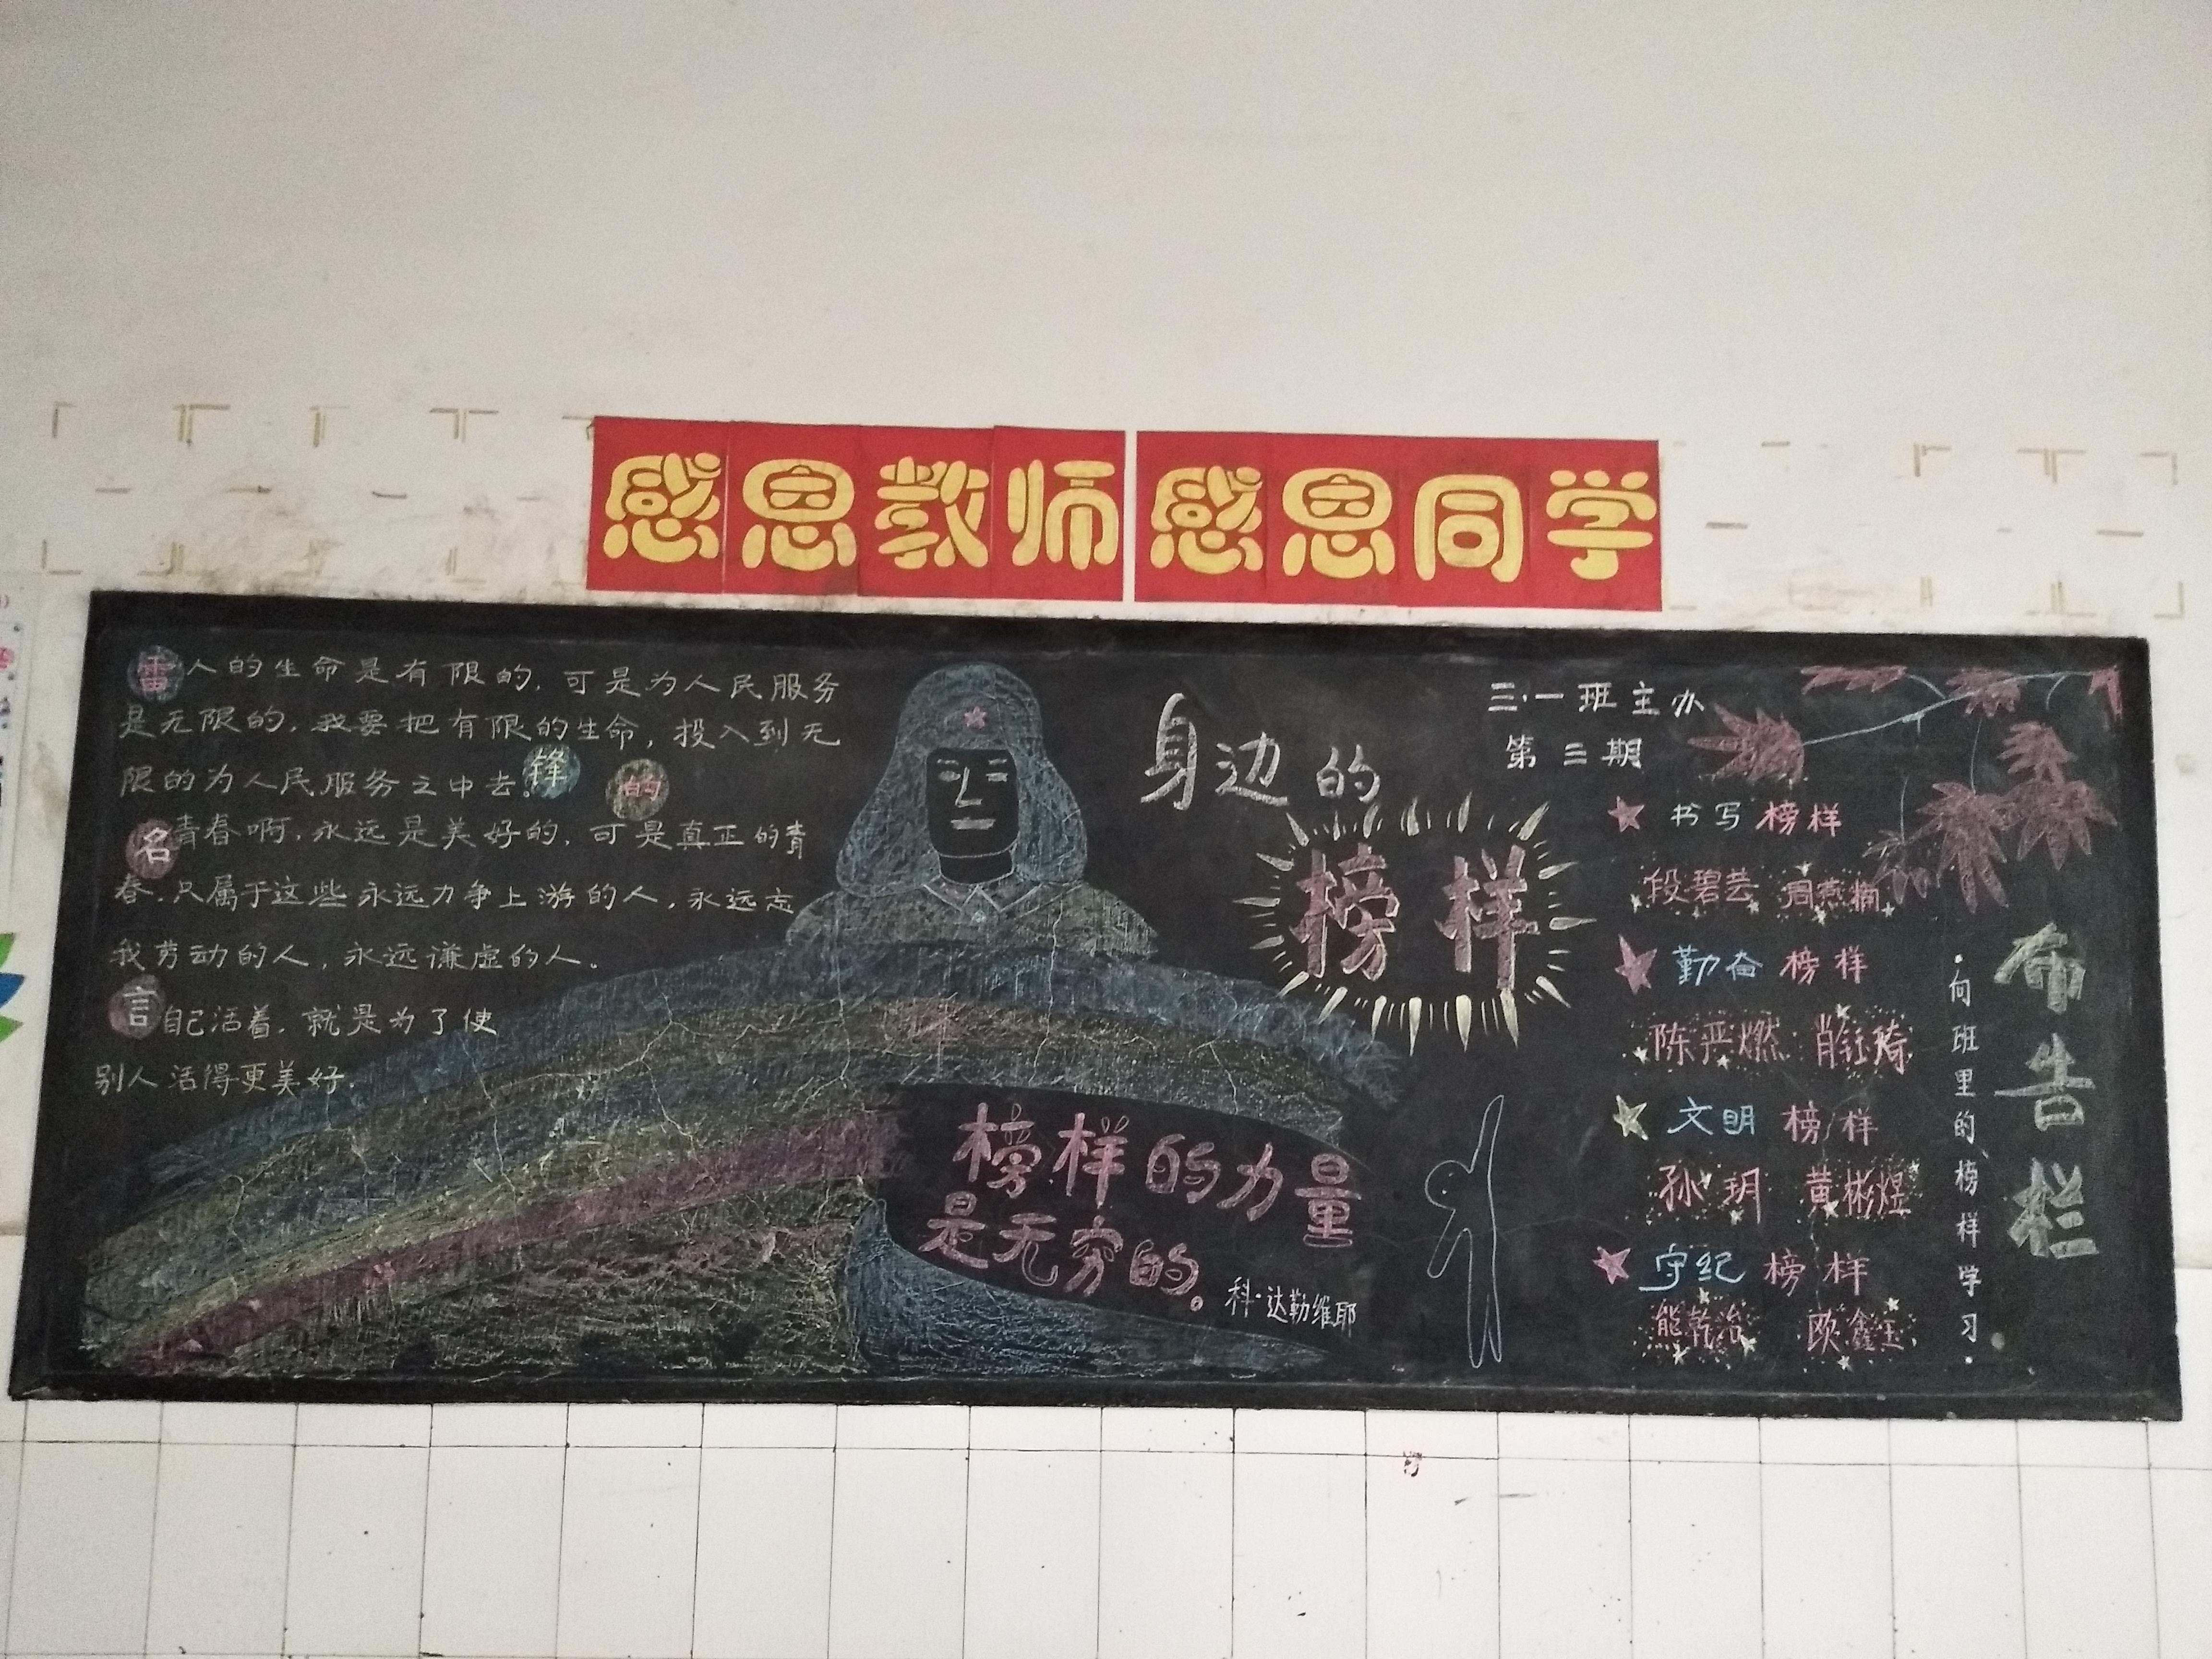 感恩教师 感恩同学
雷 人的生命是有限的，可是为人民服务
是无限的，我要把有限的生命，投入到无
限的为人民服务之中去。
锋 的
名 青春啊，永远是美好的，可是真正的青
春，只属于这些永远力争上游的人，永远忘
我劳动的人，永远谦虚的人。
言 自己活着，就是为了使
别人活得更美好。
身边的
榜样
榜样的力量
是无穷的。
科·达勒维耶
三·一班主办
第三期
书写榜样
段碧芸 周燕楠
勤奋榜样
陈严燃 肖钰琦
文明榜样
孙玥 黄彬煜
守纪榜样
熊乾治 欧鑫玉
·向班里的榜样学习·
布告栏